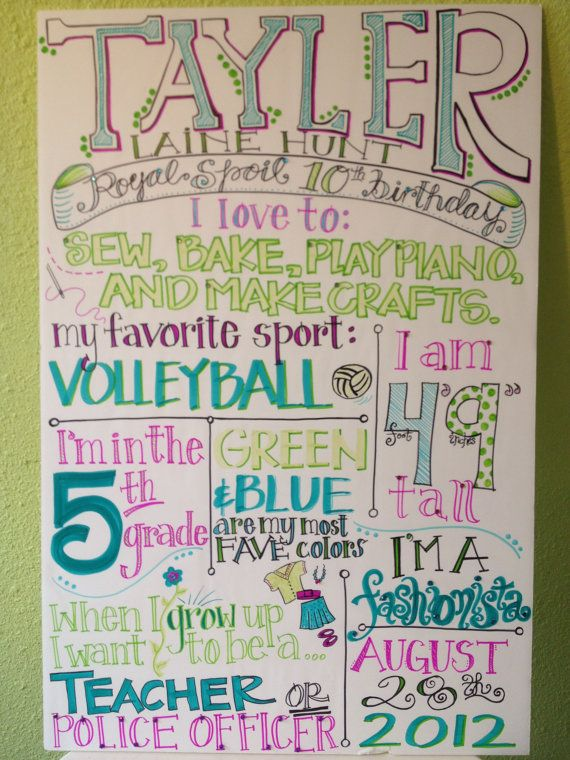 TAYLER
LAINE HUNT
Royal Spoil 10th Birthday
I love to:
SEW, BAKE, PLAY PIANO,
AND MAKE CRAFTS.
my favorite sport:
VOLLEYBALL
I am
4 foot 9 inches
tall
I'm in the
5th
grade
GREEN
& BLUE
are my most
FAVE colors
I'M A
fashionista
When I grow up
I want to be a...
TEACHER OR
POLICE OFFICER
AUGUST
28th
2012